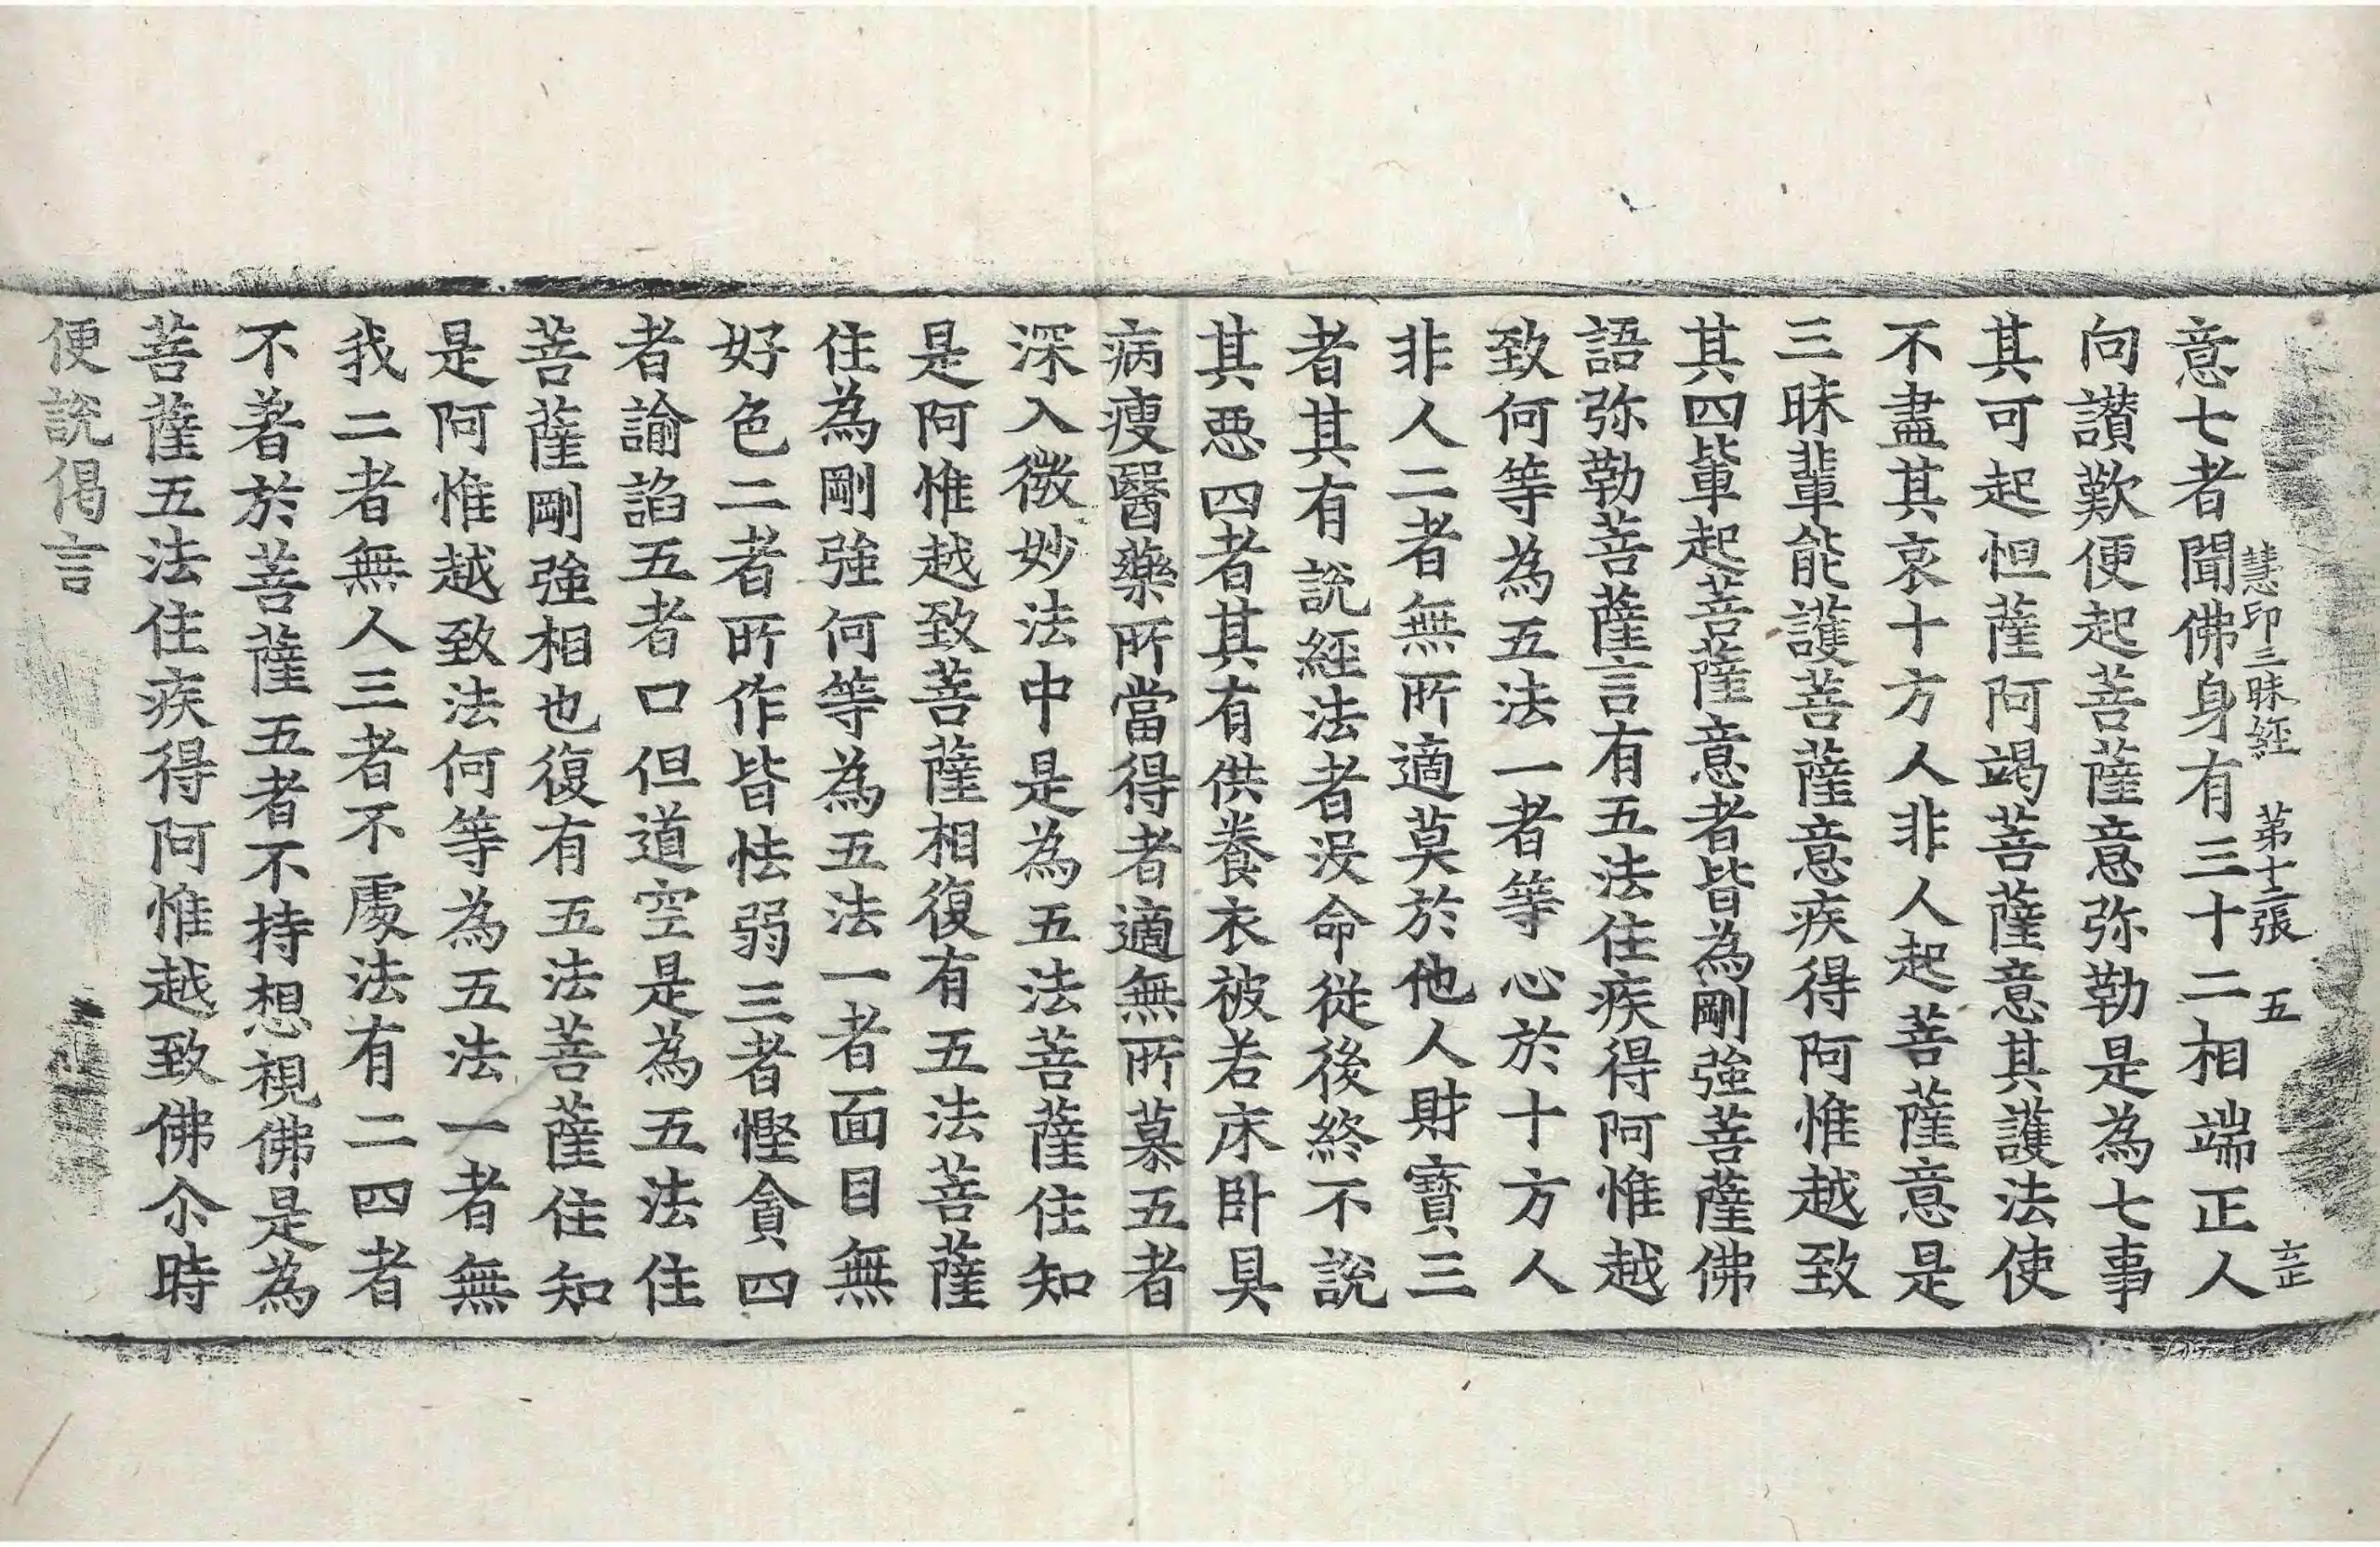 慧印三昧經 第十二張 五
意七者聞佛身有三十二相端正人
向讃歎便起菩薩意弥勒是為七事
其可起怛薩阿竭菩薩意其護法使
不盡其哀十方人非人起菩薩意是
三昧輩能護菩薩意疾得阿惟越致
其四輩起菩薩意者皆為剛強菩薩佛
語弥勒菩薩言有五法住疾得阿惟越
致何等為五法一者等心於十方人
非人二者無所適莫於他人財寶三
者其有說經法者没命從後終不說
其惡四者其有供養衣被若床卧具
病瘦醫藥所當得者適無所慕五者
深入微妙法中是為五法菩薩住知
是阿惟越致菩薩相復有五法菩薩
住為剛強何等為五法一者面目無
好色二者所作皆怯弱三者慳貪四
者諭諂五者口但道空是為五法住
菩薩剛強相也復有五法菩薩住知
是阿惟越致法何等為五法一者無
我二者無人三者不處法有二四者
不著於菩薩五者不持想視佛是為
菩薩五法住疾得阿惟越致佛尒時
便說偈言